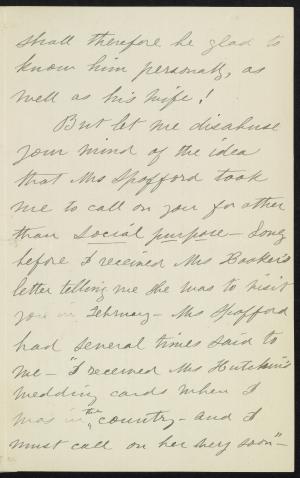 shall therefore be glad to
know him personally, as
well as his wife!
But let me disabuse
your mind of the idea
that Mrs Spofford took
me to call on you for other
than social purpose - Long
before I received Mrs Hooker's
letter telling me she was to visit
you in February - Mrs Spofford
had several times said to
me - "I received Mrs Hutchins
wedding cards when I
was in the country - and I
must call on her very soon" -